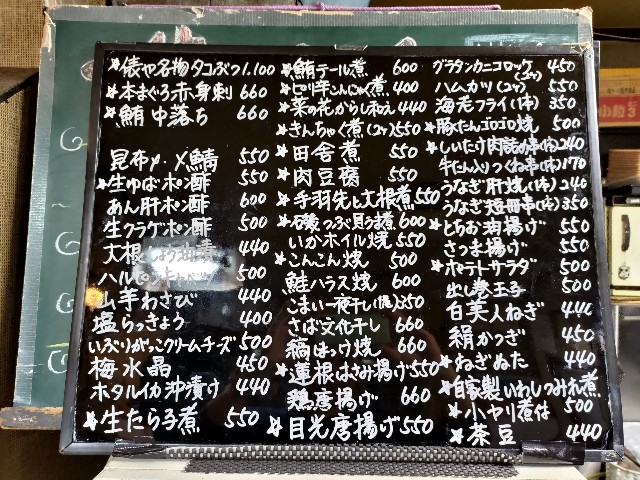 ★俵や名物タコぶつ1.100
★本まぐろ赤身刺 660
★鮪中落ち 660
昆布〆〆鯖 550
★生ゆばポン酢 550
あん肝ポン酢 600
生クラゲポン酢 500
大根しょうゆ漬 440
ハルピンキャベツ 500
山芋わさび 440
塩らっきょう 400
いぶりがっこクリームチーズ 500
梅水晶 450
ホタルイカ沖漬け 440
★生たら子煮 550
★鮪テール煮 600
★ピリ辛こんにゃく煮 400
★菜の花からし和え 440
★きんちゃく煮(コ) 550
★田舎煮 550
★肉豆腐 550
★手羽先と大根煮 550
★磯つぶ貝うま煮 600
いかホイル焼 550
★こんこん焼 500
鮭ハラス焼 600
こまい一夜干し(尾) 350
さば文化干し 660
縞ほっけ焼 660
★蓮根はさみ揚げ 550
鶏唐揚げ 660
★目光唐揚げ 550
グラタンカニコロッケ(コ) 450
ハムカツ(コ) 550
海老フライ(1本) 350
★豚たんゴロゴロ焼 500
★しいたけ肉詰め串(1本) 240
牛たん入りつくね串(1本) 170
うなぎ肝焼(1本) 240
うなぎ短冊串(1本) 350
★とちお油揚げ 550
さつま揚げ 550
★ポテトサラダ 500
出し巻玉子 500
白美人ねぎ 440
絹かつぎ 450
★ねぎぬた 440
★自家製いわしつみれ煮
★小ヤリ煮付 500
★茶豆 440